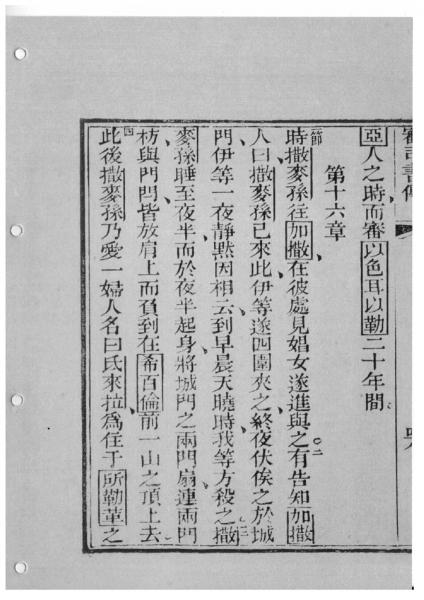 亞人之時而審以色耳以勒二十年間
第十六章
節時撒麥孫往加撒在彼處見娼女遂進與之有告知加撒
人曰撒麥孫已來此伊等遂四圍夾之終夜伏俟之於城
門伊等一夜靜默因相云到早晨天曉時我等方殺之撒
麥孫睡至夜半而於夜半起身將城門之兩門扇連兩門
枋與門閂皆放肩上而負到在希百倫前一山之頂上去
四此後撒麥孫乃愛一婦人名曰氏來拉為住于所勒華之